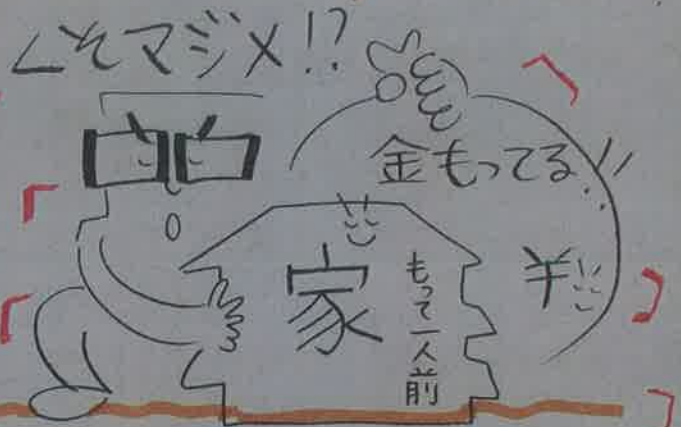 くそマジメ!?
金もってる!!
家
もって一人前
¥